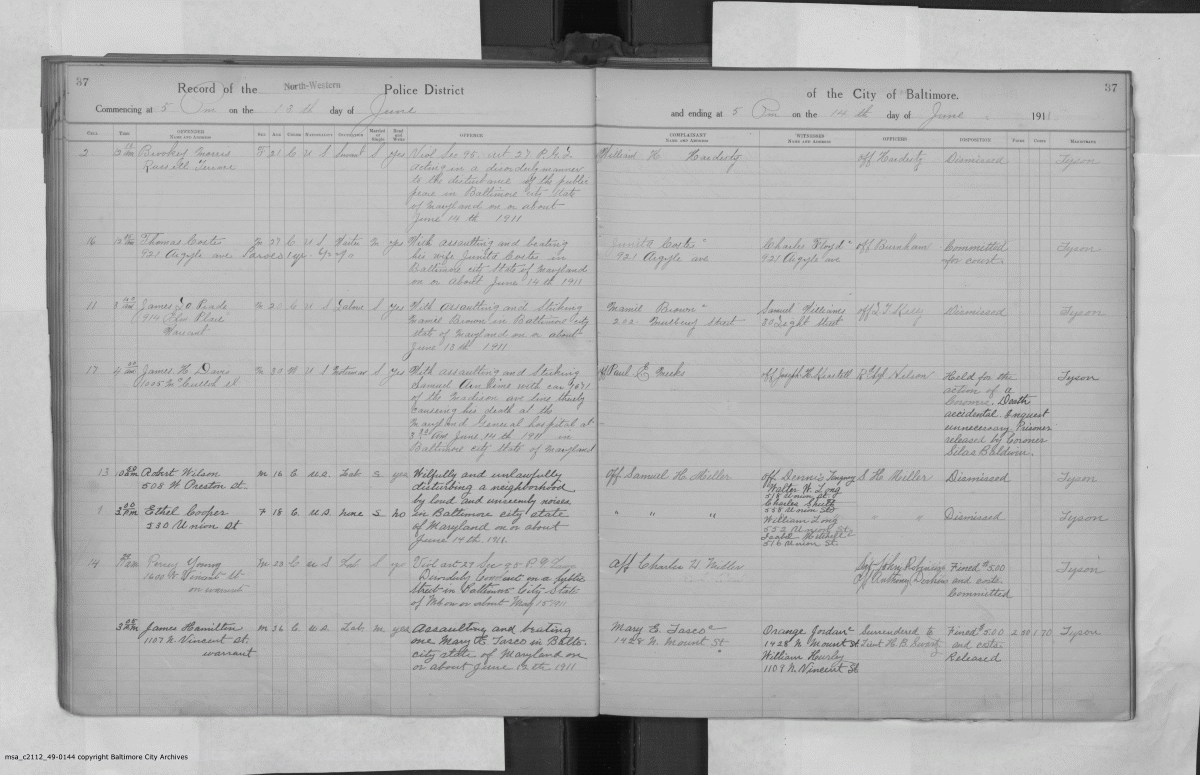 37
Record of the North-Western Police District
Commencing at 5 Pm on the 13th day of June
of the City of Baltimore. 37
and ending at 5 Pm on the 14th day of June 1911
CELL TIME OFFENDER NAME AND ADDRESS SEX AGE COLOR NATIONALITY OCCUPATION Married or Single Read and Write OFFENCE
COMPLAINANT NAME AND ADDRESS WITNESSES NAME AND ADDRESS OFFICERS DISPOSITION FINES COSTS MAGISTRATE
2 Morris F 21 C U S S yes Viol Sec 95 art 27 P.G.L.
Russell acting in a disorderly manner
to the disturbance of the public
peace in Baltimore city State
of Maryland on or about
June 14th 1911
Hillard H Hardisty off Hardisty Dismissed Tyson
16 Thomas Costes M 27 C U S Waiter M yes With assaulting and beating
921 Argyle ave his wife Junita Costes in
Baltimore city State of Maryland
on or about June 14th 1911
Junita Costes Charles Floyd off Burnham Committed Tyson
921 Argyle ave 921 Argyle ave for court
11 James M 20 C U S S yes With assaulting and Striking
914 Place Mamie Brown in Baltimore city
Warrant State of Maryland on or about
June 13th 1911
Mamie Brown Samuel Williams off Dismissed Tyson
202 Mulberry Street Street
17 James H Davis M 30 W U S Motorman S yes With assaulting and Striking
1005 McCulloh St Samuel with car
of the Madison ave line thereby
causing his death at the
Maryland General hospital at
3 30 Am June 14th 1911 in
Baltimore city State of Maryland
off Paul E Meeks off Joseph H Nelson Held for the Tyson
action of a
Coroner. Death
accidental. Inquest
unnecessary. Prisoner
released by Coroner
Silas Baldwin.
13 Robert Wilson M 16 C U.S. Lab. S yes Wilfully and unlawfully
508 W. Preston St. disturbing a neighborhood
by loud and unseemly noises
1 Ethel Cooper F 18 C U.S. none S no in Baltimore city state
530 Union St of Maryland on or about
June 14th. 1911.
Off Samuel H. Miller off Dennis S H Miller Dismissed Tyson
Walter W. Long
518 Union St.
Charles
558 Union St
" " " William Long " " Dismissed Tyson
552 Union St.
516 Union St.
14 Percy Young M 23 C U S Lab S yes Viol art 27 Sec 95 P.G. Laws
1600 N Vincent St Disorderly Conduct on a public
on warrant Street in Baltimore City State
of Md on or about May 15 1911
Off Charles H Miller Sgt John Robinson Fined $5.00 Tyson
Off Anthony and costs
Committed
James Hamilton M 36 C U.S. Lab. M yes Assaulting and beating
1107 N. Vincent St. one Mary E. Tasco in Balto.
warrant city state of Maryland on
or about June 12th 1911
Mary E. Tasco Orange Jordan Surrendered to Fined $5.00 2 30 1.70 Tyson
1428 N Mount St 1428 N Mount St Lieut H. B. and costs
William Released
1109 N. Vincent St
msa_c2112_49-0144 copyright Baltimore City Archives